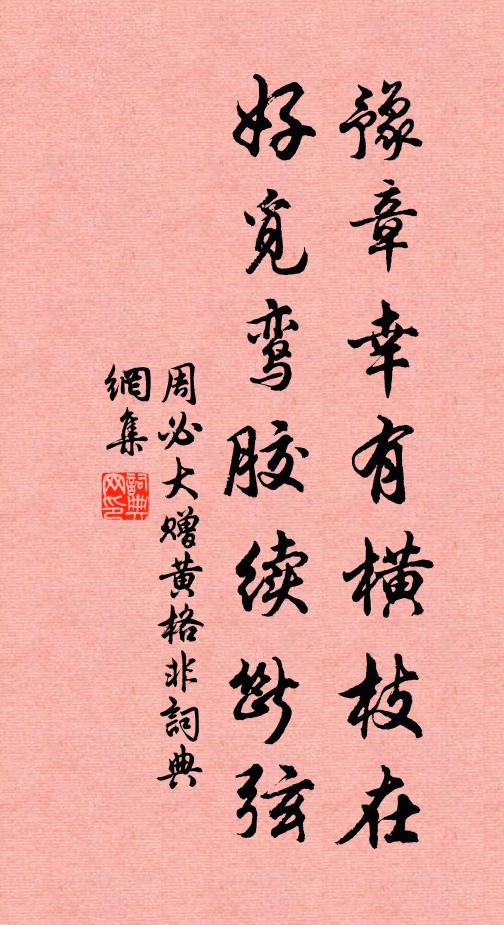 豫章幸有横枝在
好觅鸾胶续断弦
周必大赠黄格非詞典
網集
詞典
网印